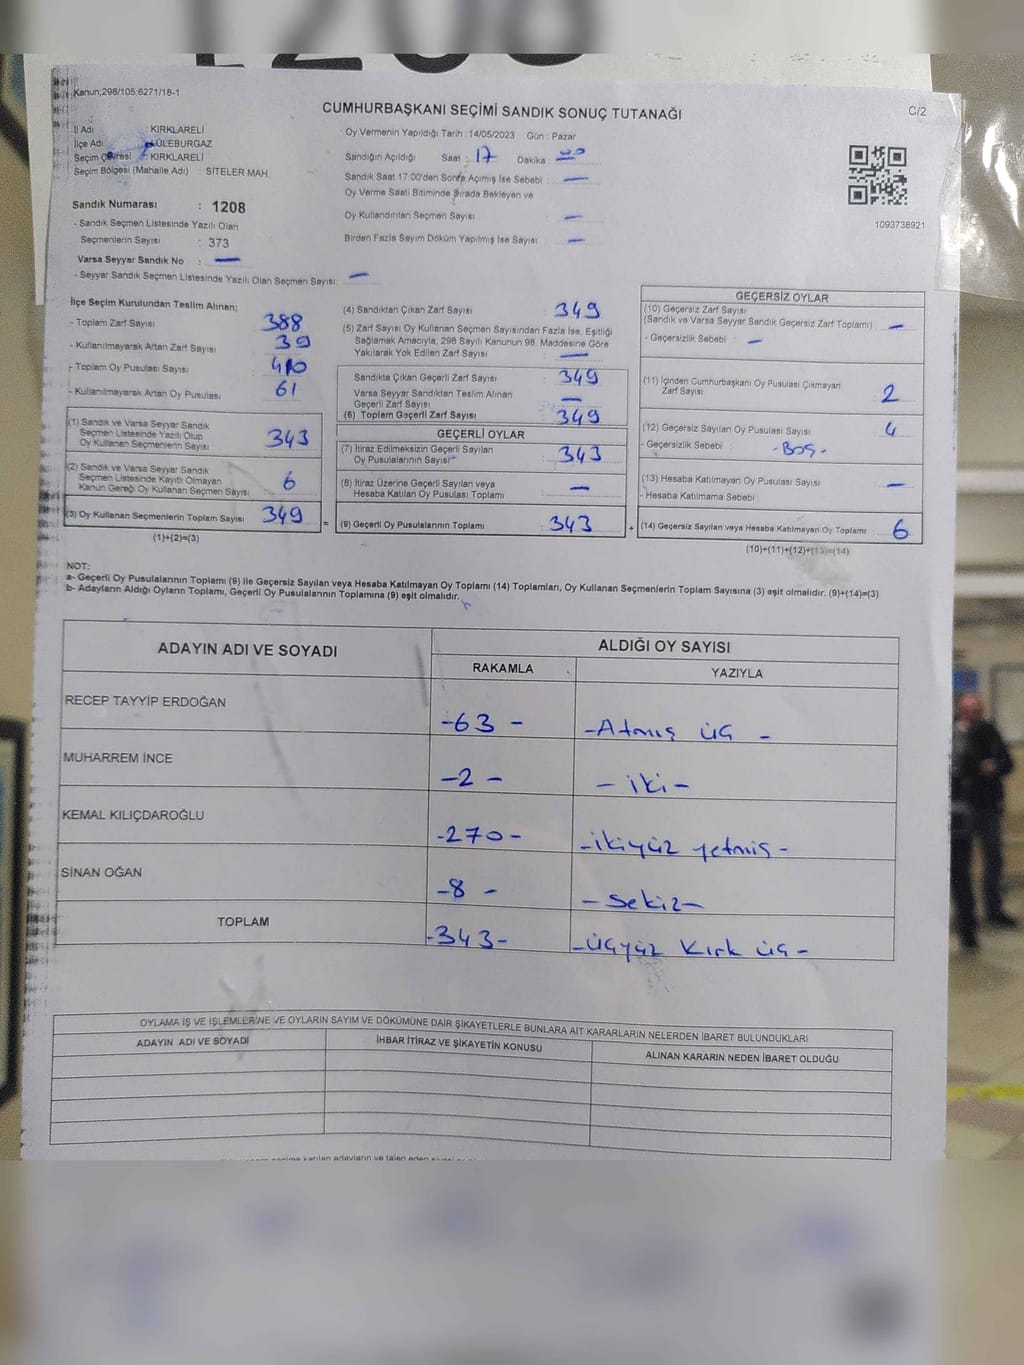 1208
Kanun,298/105:6271/18-1
CUMHURBAŞKANI SEÇİMİ SANDIK SONUÇ TUTANAĞI
C/2
İl Adı : KIRKLARELİ
İlçe Adı : LÜLEBURGAZ
Seçim Çevresi : KIRKLARELİ
Seçim Bölgesi (Mahalle Adı) : SİTELER MAH.
Sandık Numarası : 1208
- Sandık Seçmen Listesinde Yazılı Olan
Seçmenlerin Sayısı : 373
Varsa Seyyar Sandık No : —
- Seyyar Sandık Seçmen Listesinde Yazılı Olan Seçmen Sayısı: —
Oy Vermenin Yapıldığı Tarih : 14/05/2023 Gün : Pazar
Sandığın Açıldığı Saat : 17 Dakika : 00
Sandık Saat 17.00'den Sonra Açılmış İse Sebebi : —
Oy Verme Saati Bitiminde Sırada Bekleyen ve
Oy Kullandırılan Seçmen Sayısı : —
Birden Fazla Sayım Döküm Yapılmış İse Sayısı : —
1093738921
İlçe Seçim Kurulundan Teslim Alınan;
- Toplam Zarf Sayısı : 388
- Kullanılmayarak Artan Zarf Sayısı : 39
- Toplam Oy Pusulası Sayısı : 410
- Kullanılmayarak Artan Oy Pusulası : 61
(1) Sandık ve Varsa Seyyar Sandık
Seçmen Listesinde Yazılı Olup
Oy Kullanan Seçmenlerin Sayısı : 343
(2) Sandık ve Varsa Seyyar Sandık
Seçmen Listesinde Kayıtlı Olmayan
Kanun Gereği Oy Kullanan Seçmen Sayısı : 6
(3) Oy Kullanan Seçmenlerin Toplam Sayısı : 349
(1)+(2)=(3)
(4) Sandıktan Çıkan Zarf Sayısı : 349
(5) Zarf Sayısı Oy Kullanan Seçmen Sayısından Fazla İse, Eşitliği
Sağlamak Amacıyla, 298 Sayılı Kanunun 98. Maddesine Göre
Yakılarak Yok Edilen Zarf Sayısı : —
Sandıkta Çıkan Geçerli Zarf Sayısı : 349
Varsa Seyyar Sandıktan Teslim Alınan
Geçerli Zarf Sayısı : —
(6) Toplam Geçerli Zarf Sayısı : 349
GEÇERLİ OYLAR
(7) İtiraz Edilmeksizin Geçerli Sayılan
Oy Pusulalarının Sayısı : 343
(8) İtiraz Üzerine Geçerli Sayılan veya
Hesaba Katılan Oy Pusulası Toplamı : —
= (9) Geçerli Oy Pusulalarının Toplamı : 343
GEÇERSİZ OYLAR
(10) Geçersiz Zarf Sayısı :
(Sandık ve Varsa Seyyar Sandık Geçersiz Zarf Toplamı) —
- Geçersizlik Sebebi : —
(11) İçinden Cumhurbaşkanı Oy Pusulası Çıkmayan
Zarf Sayısı : 2
(12) Geçersiz Sayılan Oy Pusulası Sayısı : 4
- Geçersizlik Sebebi : -Boş-
(13) Hesaba Katılmayan Oy Pusulası Sayısı : —
- Hesaba Katılmama Sebebi :
+ (14) Geçersiz Sayılan veya Hesaba Katılmayan Oy Toplamı : 6
(10)+(11)+(12)+(13)=(14)
NOT:
a- Geçerli Oy Pusulalarının Toplamı (9) ile Geçersiz Sayılan veya Hesaba Katılmayan Oy Toplamı (14) Toplamları, Oy Kullanan Seçmenlerin Toplam Sayısına (3) eşit olmalıdır. (9)+(14)=(3)
b- Adayların Aldığı Oyların Toplamı, Geçerli Oy Pusulalarının Toplamına (9) eşit olmalıdır.
ADAYIN ADI VE SOYADI
ALDIĞI OY SAYISI
RAKAMLA YAZIYLA
RECEP TAYYİP ERDOĞAN -63- -Atmış üç-
MUHARREM İNCE -2- -iki-
KEMAL KILIÇDAROĞLU -270- -ikiyüz yetmiş-
SİNAN OĞAN -8- -Sekiz-
TOPLAM -343- -üçyüz Kırk üç-
OYLAMA İŞ VE İŞLEMLERİNE VE OYLARIN SAYIM VE DÖKÜMÜNE DAİR ŞİKAYETLERLE BUNLARA AİT KARARLARIN NELERDEN İBARET BULUNDUKLARI
ADAYIN ADI VE SOYADI
İHBAR İTİRAZ VE ŞİKAYETİN KONUSU
ALINAN KARARIN NEDEN İBARET OLDUĞU